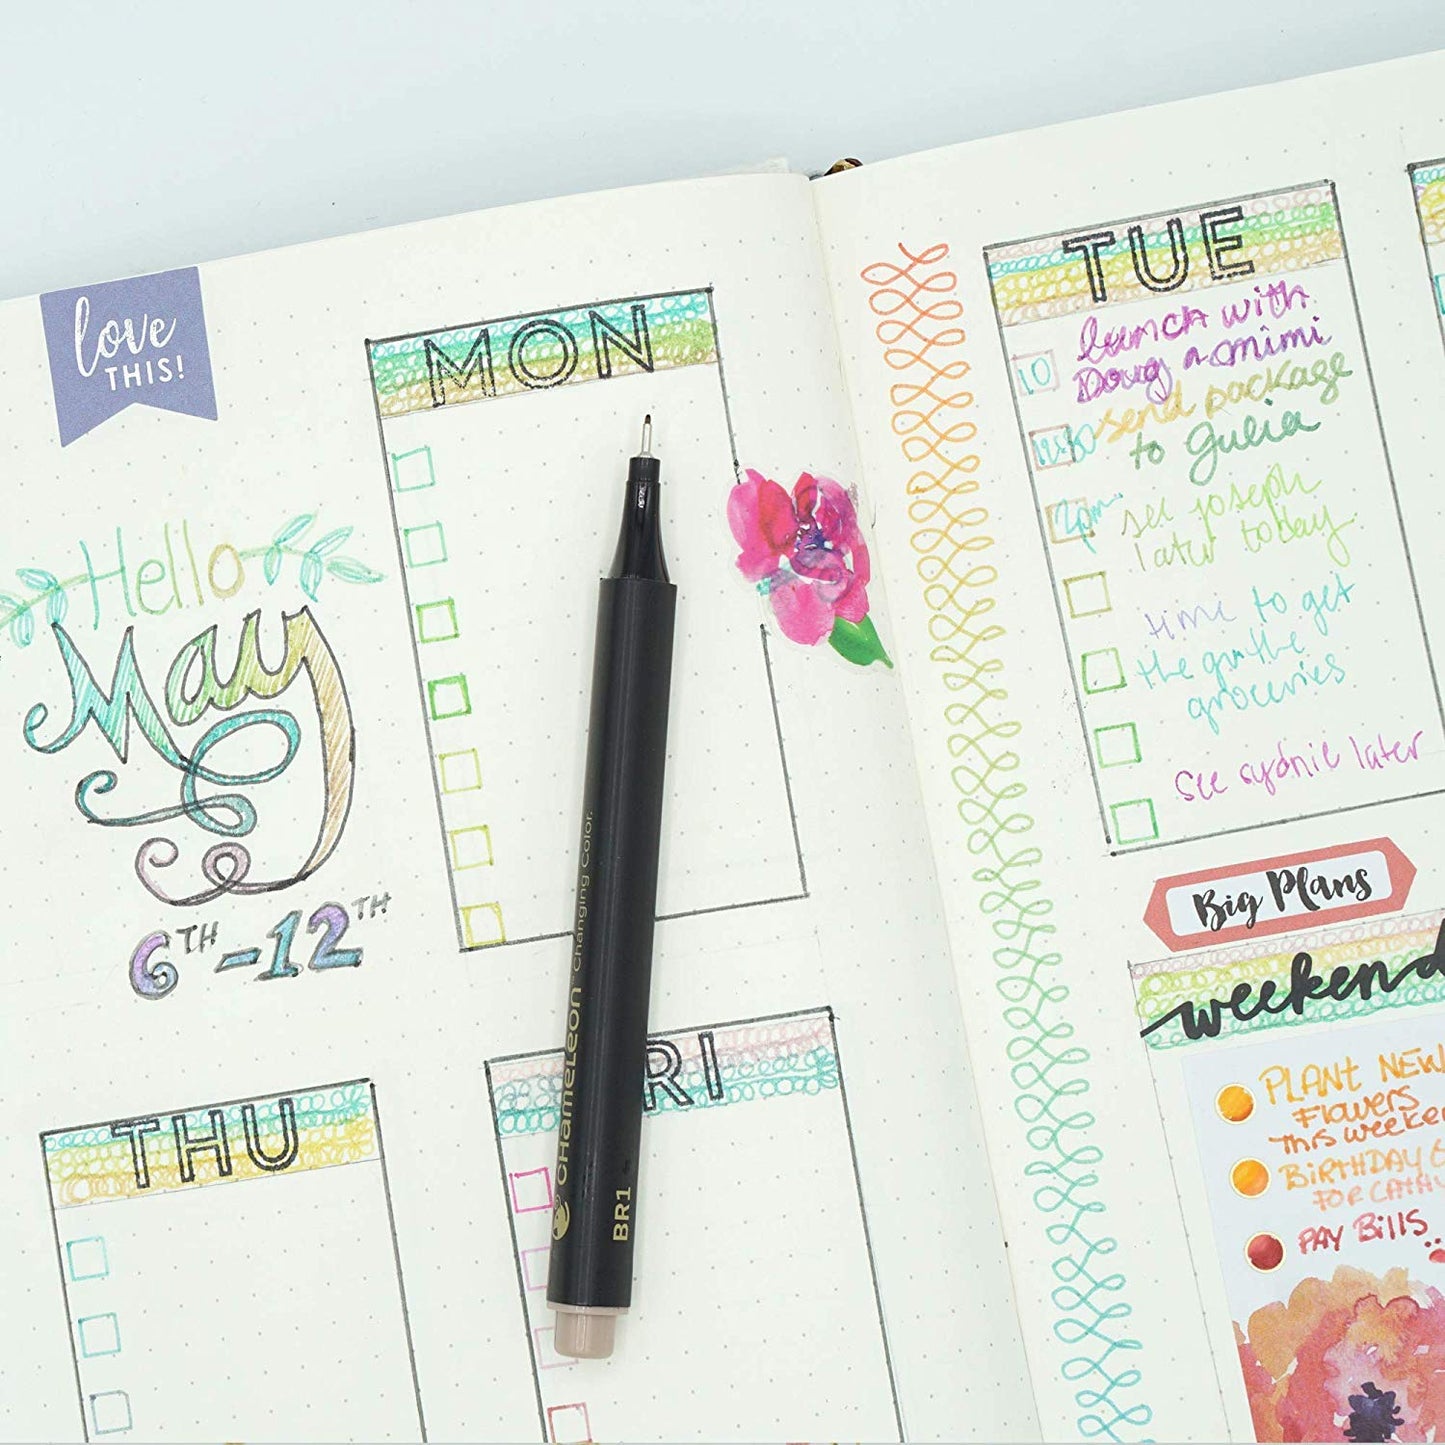 love
THIS!
Hello
May
6TH-12TH
MON
THU
RI
CHAMELEON Changing Color.
BR1
TUE
10
lunch with
Doug n mimi
send package
to Gulia
2pm
see joseph
later today
time to get
the
groceries
See sydnie later
Big Plans
weekend
PLANT NEW
Flowers
THIS WEEKEN
BIRTHDAY G
FOR CATHY
PAY BILLS